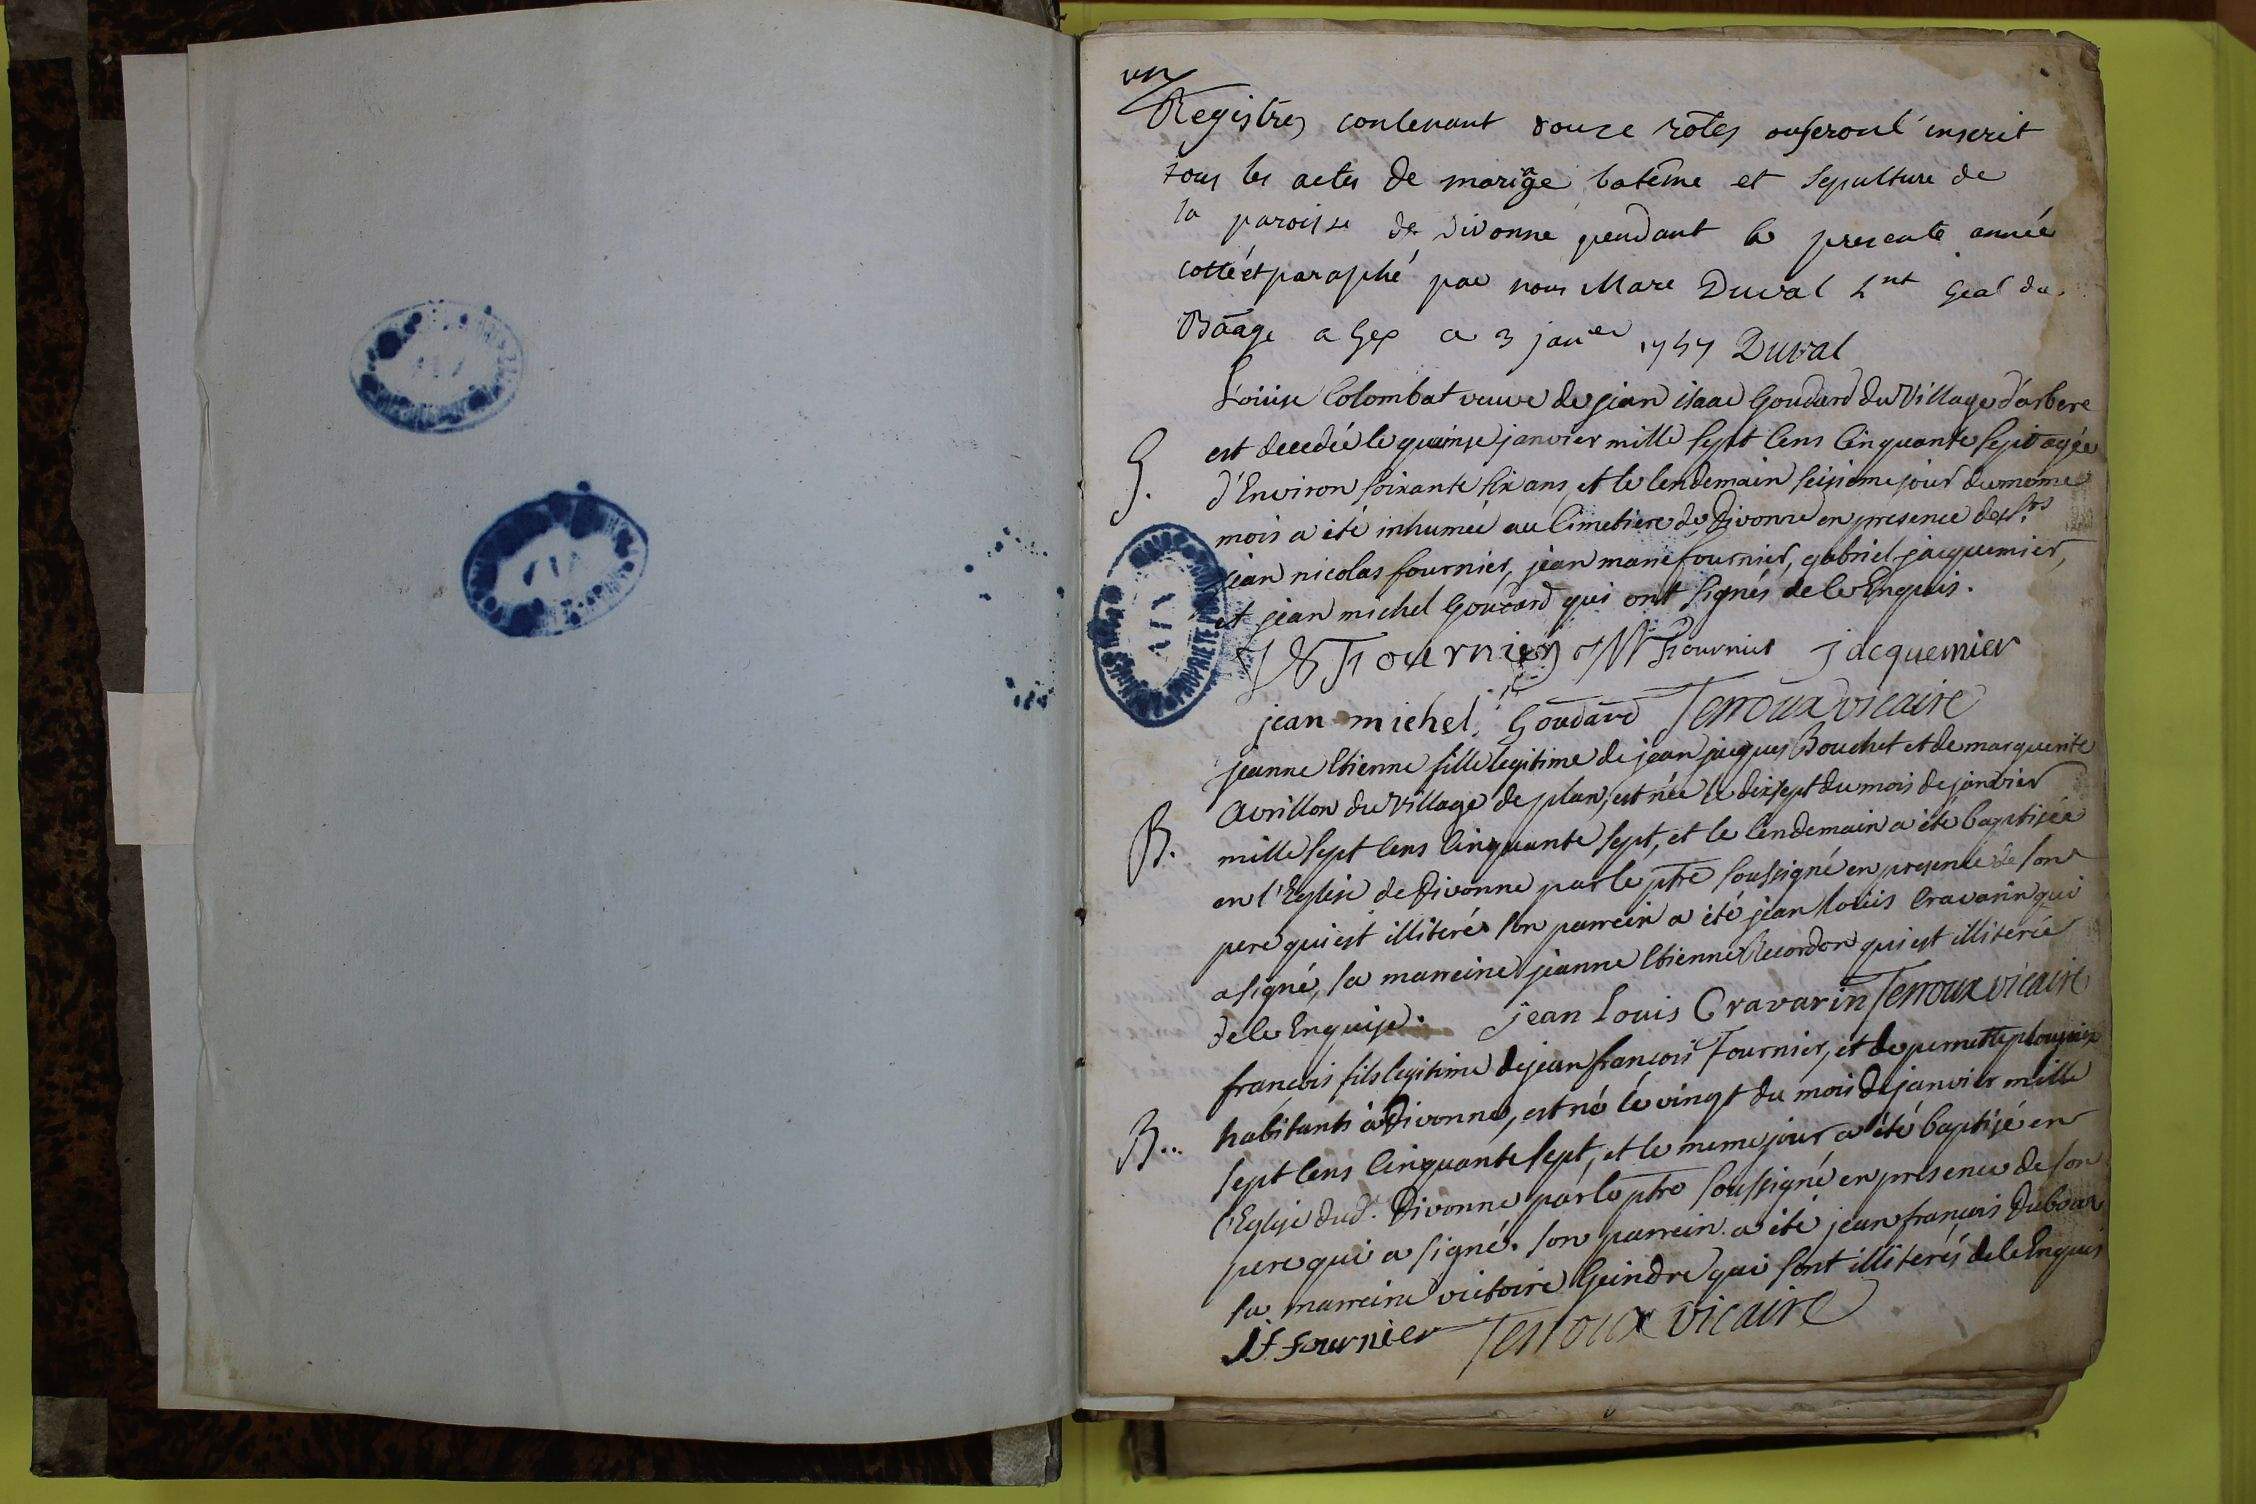 un
Registres contenant douze rôles ou seront inscrit
tous les actes de mariage batême et sepulture de
la paroisse de divonne pendant la presente année
cotté et paraphé par nous Marc Duval Lnt Gëal du
Bäage a Gex ce 3 janer 1757 Duval
Loüise Colombat veuve de jean isaac Goudard du Village d'arbere
est decedée le quinse janvier mille sept Cens Cinquante sept agée
S. d'Environ soixante six ans, et le lendemain seisieme jour du même
mois a été inhumée au Cimetiere de Divonne en presence des srs
jean nicolas fournier, jean marie fournier, gabriel jacquemier,
et jean michel Goudard qui ont signés de ce Enquis.
JN Fournier JM Fournier jacquemier
jean michel Goudard Terroux vicaire
jeanne Etienne fille legitime de jean jacques Bouchet et de marguerite
Avrillon du Village de plan, est née le dixsept du mois de janvier
B. mille sept Cens Cinquante sept, et le lendemain a été baptisée
en l'Eglise de Divonne par le ptre soussigné en presence de son
pere qui est illiteré. son parrein a été jean loüis Cravarin qui
a signé, sa marreine jeanne Etienne Recordon qui est illiterée
de ce Enquise. jean Louis Cravarin Terroux vicaire
francois fils legitime de jean francois Fournier, et de pernette
habitants à Divonne, est né le vingt du mois de janvier mille
B.. sept Cens Cinquante sept, et le meme jour a été baptisé en
l'Eglise dud. Divonne par le ptre soussigné en presence de son
pere qui a signé. son parrein a été jean francois Dubour
sa marreine victoire Geindre qui sont illiterés de ce Enquis
J.f. Fournier Terroux vicaire
AIN
PROPRIETE